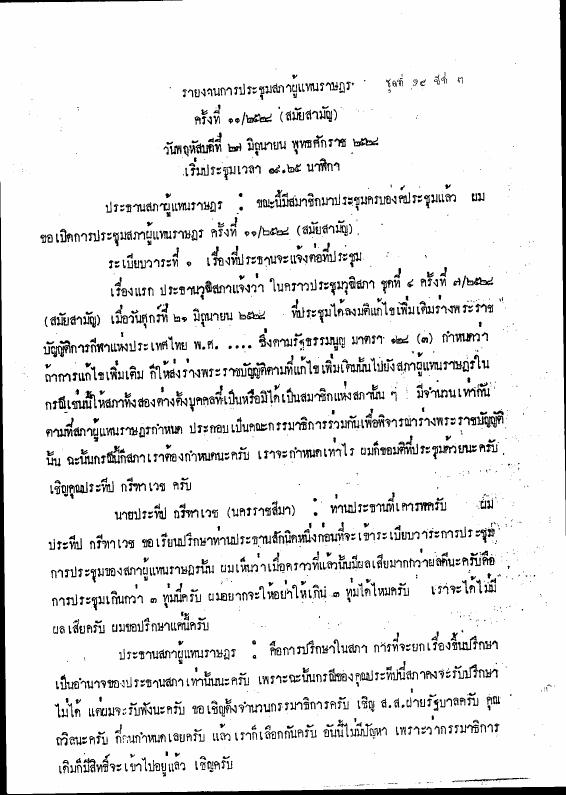 รายงานการประชุมสภาผู้แทนราษฎร ชุดที่ ๑๕ ปีที่ ๓
ครั้งที่ ๑๑/๒๕๒๘ (สมัยสามัญ)
วันพฤหัสบดีที่ ๒๗ มิถุนายน พุทธศักราช ๒๕๒๘
เริ่มประชุมเวลา ๑๔.๒๕ นาฬิกา
ประธานสภาผู้แทนราษฎร : ขณะนี้มีสมาชิกมาประชุมครบองค์ประชุมแล้ว ผม
ขอเปิดการประชุมสภาผู้แทนราษฎร ครั้งที่ ๑๑/๒๕๒๘ (สมัยสามัญ)
ระเบียบวาระที่ ๑ เรื่องที่ประธานจะแจ้งต่อที่ประชุม
เรื่องแรก ประธานวุฒิสภาแจ้งว่า ในคราวประชุมวุฒิสภา ชุดที่ ๔ ครั้งที่ ๗/๒๕๒๘
(สมัยสามัญ) เมื่อวันศุกร์ที่ ๒๑ มิถุนายน ๒๕๒๘ ที่ประชุมได้ลงมติแก้ไขเพิ่มเติมร่างพระราช
บัญญัติการกีฬาแห่งประเทศไทย พ.ศ. .... ซึ่งตามรัฐธรรมนูญ มาตรา ๑๔๘ (๓) กำหนดว่า
ถ้าการแก้ไขเพิ่มเติม ก็ให้ส่งร่างพระราชบัญญัติตามที่แก้ไขเพิ่มเติมนั้นไปยังสภาผู้แทนราษฎรใน
กรณีเช่นนี้ให้สภาทั้งสองต่างตั้งบุคคลที่เป็นหรือมิได้เป็นสมาชิกแห่งสภานั้น ๆ มีจำนวนเท่ากัน
ตามที่สภาผู้แทนราษฎรกำหนด ประกอบเป็นคณะกรรมาธิการร่วมกันเพื่อพิจารณาร่างพระราชบัญญัติ
นั้น ฉะนั้นกรณีนี้ก็สภาเราต้องกำหนดนะครับ เราจะกำหนดเท่าไร ผมก็ขอมติที่ประชุมด้วยนะครับ
เชิญคุณประทีป กรีฑาเวช ครับ
นายประทีป กรีฑาเวช (นครราชสีมา) : ท่านประธานที่เคารพครับ ผม
ประทีป กรีฑาเวช ขอเรียนปรึกษาท่านประธานสักนิดหนึ่งก่อนที่จะเข้าระเบียบวาระการประชุม
การประชุมของสภาผู้แทนราษฎรนั้น ผมเห็นว่าเมื่อคราวที่แล้วนั้นมีผลเสียมากกว่าผลดีนะครับคือ
การประชุมเกินกว่า ๓ ทุ่มนี่ครับ ผมอยากจะให้อย่าให้เกิน ๓ ทุ่มได้ไหมครับ เราจะได้ไม่มี
ผลเสียครับ ผมขอปรึกษาแค่นี้ครับ
ประธานสภาผู้แทนราษฎร : คือการปรึกษาในสภา การที่จะยกเรื่องขึ้นปรึกษา
เป็นอำนาจของประธานสภาเท่านั้นนะครับ เพราะฉะนั้นกรณีของคุณประทีปนี่สภาคงจะรับปรึกษา
ไม่ได้ แต่ผมจะรับฟังนะครับ ขอเชิญตั้งจำนวนกรรมาธิการครับ เชิญ ส.ส.ฝ่ายรัฐบาลครับ คุณ
ถวิลนะครับ กี่คนกำหนดเลยครับ แล้วเราก็เลือกกันครับ อันนี้ไม่มีปัญหา เพราะว่ากรรมาธิการ
เดิมก็มีสิทธิ์จะเข้าไปอยู่แล้ว เชิญครับ